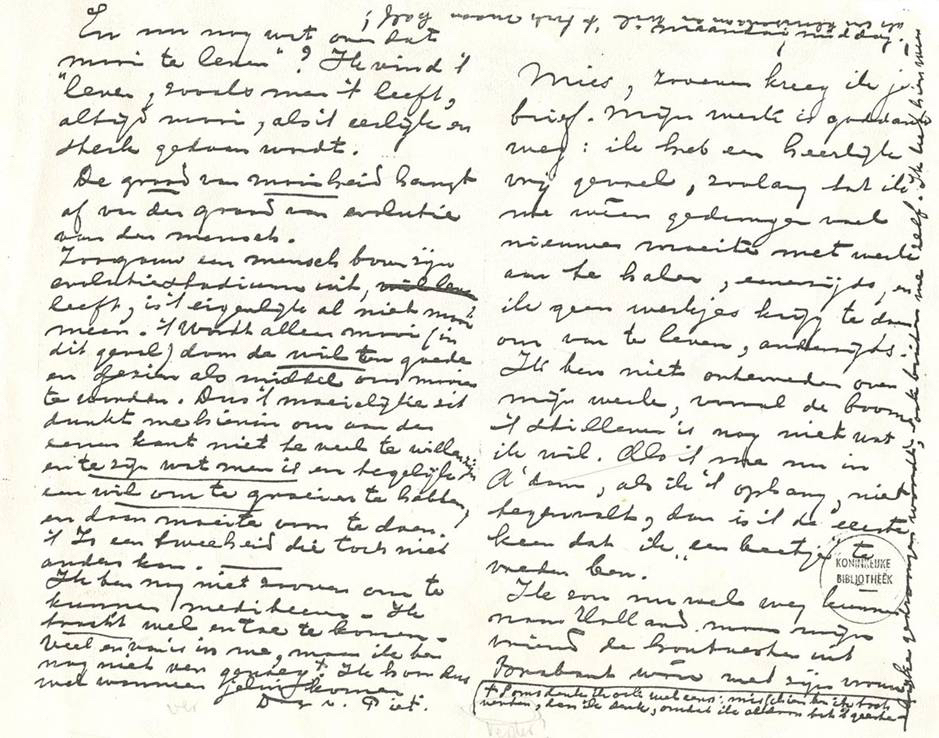 En nu nog wat over dat
mooi te leven"? Ik vind 't
"leven, zooals men 't leeft,
altijd mooi, als 't eerlijk en
sterk gedaan wordt.
De graad van mooiheid hangt
af van den graad van evolutie
van den mensch.
Zoogauw een mensch boven zijn
evolutiestadium uit, wil leven
leeft, is 't eigenlijk al niet mooi
meer. 't Wordt alleen mooi (in
dit geval) door de wil ten goede
en gezien als middel om mooier
te worden. Dus 't moeielijke zit
dunkt me hierin om aan den
eenen kant niet te veel te willen zijn
en te zijn wat men is en tegelijk
een wil om te groeien te hebben,
en daar moeite voor te doen.
't Is een tweeheid die toch niet
anders kan.
Ik ben nog niet zoover om te
kunnen mediteeren. Ik
tracht wel ertoe te komen.
Veel ervan is in me, maar ik ben
nog niet ver genoeg +. Ik hoor dus
wel wanneer je kunt komen
Dag v. Piet.
Maandag middag.
Mies, zooeven kreeg ik je
brief. Mijn werk is goddank
weg: ik heb een heerlijk
vrij gevoel, zoolang tot ik
me weer gedrongen voel
nieuwe moeite met werk
aan te halen, eenerzijds, en
ik geen werkjes krijg te doen
om van te leven, anderzijds.
Ik ben niet ontevreden over
mijn werk, vooral de boom
't stilleven is nog niet wat
ik wil. Als 't me nu in
A'dam, als ik 't ophang, niet
tegenvalt, dan is 't de eerste
keer dat ik "een beetje" te-
vreden ben.
Ik zou nu wel weg kunnen
naar Holland maar mijn
vriend de houtvester uit
Brabant was met zijn vrouw
+ Soms denk ik ook wel eens: misschien ben ik toch
verder, dan ik denk, omdat ik altoos tot 't geeste-
lijke gedrongen wordt, ook buiten me zelf. Ik heb hier een
KONINKLIJKE
BIBLIOTHEEK